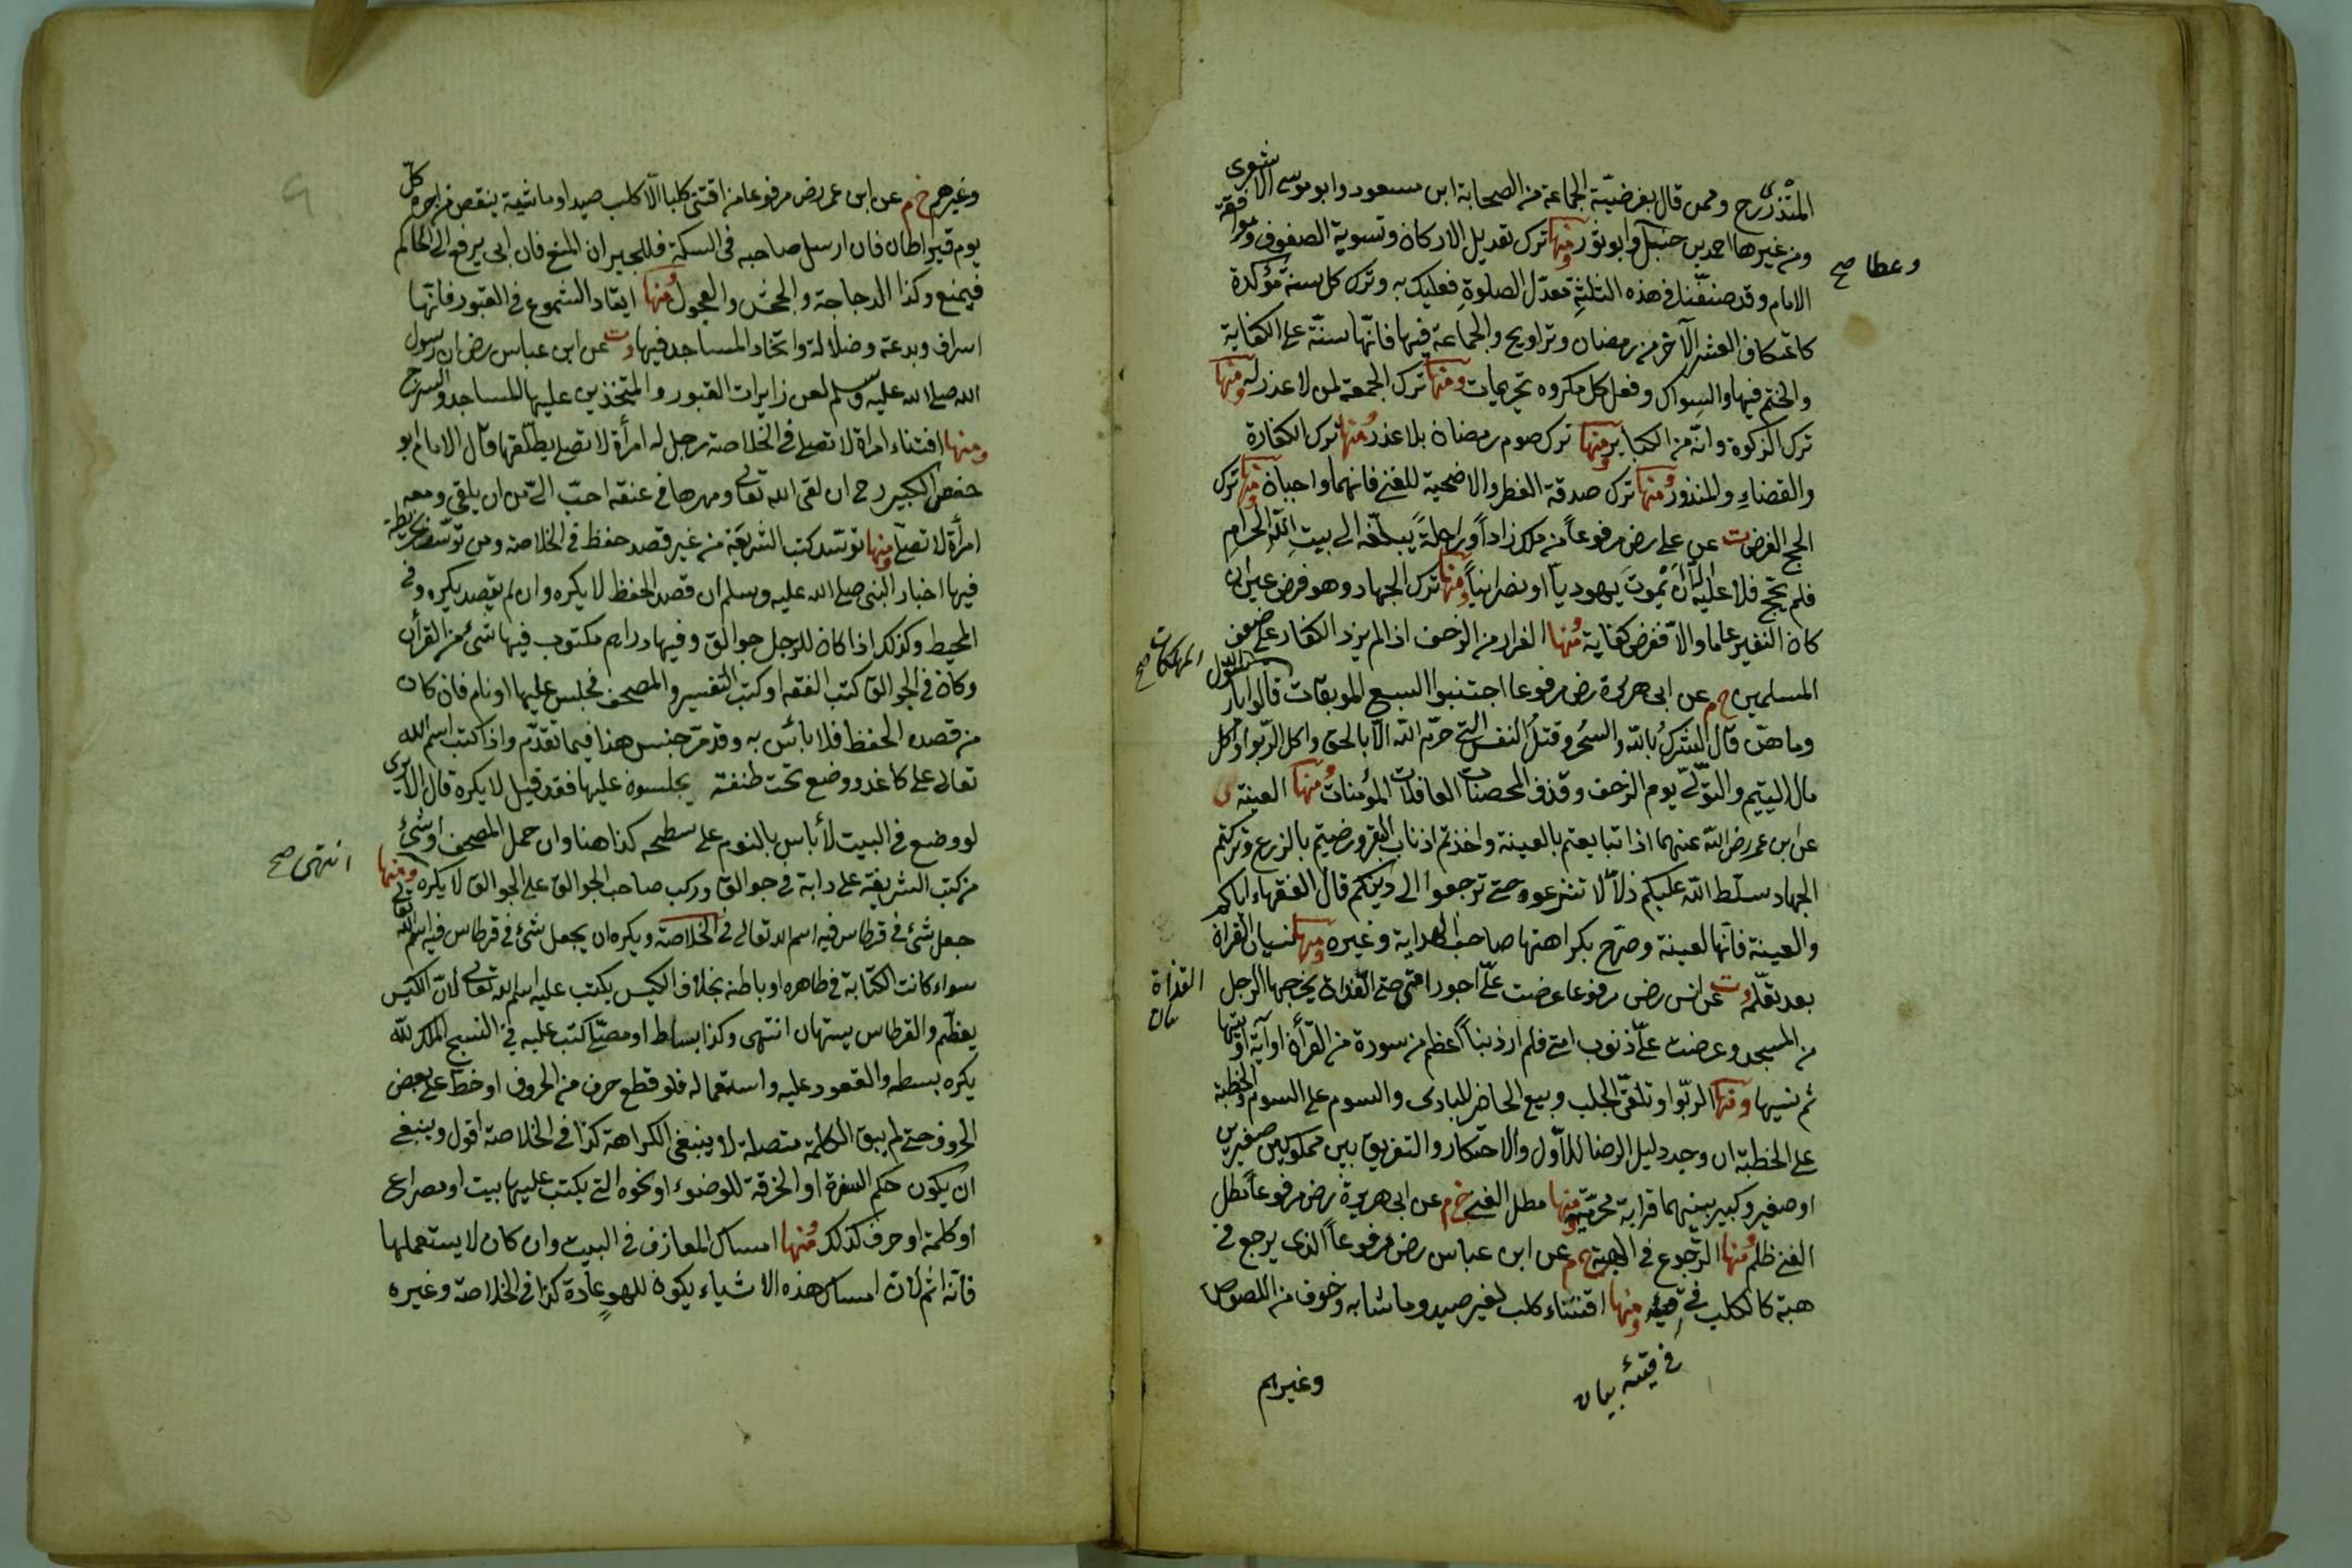 المنذرى رح وممن قال بفرضيّة الجماعة من الصحابة ابن مسعود وابو موسى الاشعرى
ومن غيرها احمد بن حنبل وابو ثور ومنها ترك تعديل الاركان وتسوية الصفوف وموافقة
وعطا صح
الامام وقد صنفنا فى هذه الثلثة معدّل الصلوة فعليك به وترك كل سنة مؤكدة
كاعتكاف العشر الآخر من رمضان وتراويح والجماعة فيها فانّها سنّة على الكفاية
والختم فيها والسواك وفعل كل مكروه تحريما ومنها ترك الجمعة لمن لا عذر له ومنها
ترك الزكوة وانّه من الكباير ومنها ترك صوم رمضان بلا عذر ومنها ترك الكفارة
والقضاء والمنذور ومنها ترك صدقة الفطر والاضحية للغنى فانهما واجبان ومنها ترك
الحج الفرض ت عن على رض مرفوعاً من ملك زاداً وراحلةً يبلّغه الى بيت اللّه الحرام
فلم يحجّ فلا عليه الّا ان يموت يهودياً او نصرانياً ومنها ترك الجهاد وهو فرض عين ان
كان النفير عاما والّا ففرض كفاية ومنها الفرار من الزحف اذا لم يزد الكفار على ضعف
المسلمين خ م عن ابى هريرة رض مرفوعا اجتنبوا السبع الموبقات قالوا يا رسول اللّه
المهلكات صح
وما هنّ قال الشرك باللّه والسحر وقتل النفس التى حرّم اللّه الّا بالحق واكل الرّبوا واكل
مال اليتيم والتولّى يوم الزحف وقذف المحصنات الغافلات المؤمنات ومنها العينة
عن ابن عمر رض اللّه عنهما اذا تبايعتم بالعينة واخذتم اذناب البقر ورضيتم بالزرع وتركتم
الجهاد سلّط اللّه عليكم ذلاً لا تنزعوه حتى ترجعوا الى دينكم قال الفقهاء اياكم
والعينة فانّها لعينة وصرّح بكراهتها صاحب الهداية وغيره ومنها نسيان القرآن
بعد تعلّمه د ت عن انس رض مرفوعا عرضت علىّ اجور امتى حتى القذاة يخرجها الرجل
القذاة بيان
من المسجد وعرضت علىّ ذنوب امتى فلم ار ذنباً اعظم من سورة من القرآن او آية اوتيها
ثم نسيها ومنها الربّوا وتلقّى الجلب وبيع الحاضر للبادى والسوم على السوم والخطبة
على الخطبة ان وجد دليل الرضا للاوّل والاحتكار والتفريق بين مملوكين صغيرين
او صغير وكبير بينهما قرابة محرّمية ومنها مطل الغنى خ م عن ابى هريرة رض مرفوعاً مطل
الغنى ظلم ومنها الرّجوع فى الهبة خ م عن ابن عباس رض مرفوعاً الذى يرجع فى
هبته كالكلب فى قيئه ومنها اقتناء كلب لغير صيد وماشية وخوف من اللصوص
فى قيئه بيان
وغيرهم
وغيرهم خ م عن ابن عمر رض مرفوعا من اقتنى كلبا الّا كلب صيد او ماشية ينقص من اجره كلّ
يوم قيراطان فان ارسل صاحبه فى السكة فللجيران المنع فان ابى يرفع الى الحاكم
فيمنع وكذا الدجاجة والجحش والعجول ومنها ايقاد الشموع فى القبور فانّها
اسراف وبدعة وضلالة واتخاذ المساجد فيها د ت عن ابن عباس رض ان رسول
اللّه صلى اللّه عليه وسلم لعن زايرات القبور والمتخذين عليها المساجد والسرج
ومنها اقتناء امراة لا تصلى فى الخلاصة رجل له امرأة لا تصلى يطلّقها قال الامام ابو
حفص الكبير رح ان لقى اللّه تعالى ومهرها فى عنقه احبّ الىّ من ان يلقى ومعه
امرأة لا تصلى ومنها توسّد كتب الشريعة من غير قصد حفظ فى الخلاصة ومن توسّد بخريطة
فيها اخبار النبى صلى اللّه عليه وسلم ان قصد الحفظ لا يكره وان لم يقصد يكره وفى
المحيط وكذلك اذا كان للرجل جوالق وفيها دراهم مكتوب فيها شئ من القرآن
وكان فى الجوالق كتب الفقه او كتب التفسير والمصحف فجلس عليها او نام فان كان
من قصده الحفظ فلا بأس به وقد مرّ جنس هذا فيما تقدّم واذا كتب اسم اللّه
تعالى على كاغد ووضع تحت طنفسة يجلسون عليها فقد قيل لا يكره قال الا يرى
لو وضع فى البيت لا بأس بالنوم على سطحه كذا هنا وان حمل المصحف او شئ
من كتب الشريعة على دابة فى جوالق وركب صاحب الجوالق على الجوالق لا يكره ومنها
انتهى صح
جعل شئ فى قرطاس فيه اسم اللّه تعالى فى الخلاصة ويكره ان يجعل شئ فى قرطاس فيه اسم اللّه تعالى
سواء كانت الكتابة فى ظاهره او باطنه بخلاف الكيس يكتب عليه اسم اللّه تعالى لانّ الكيس
يعظّم والقرطاس يستهان انتهى وكذا بساط او مصلّى كتب عليه فى النسج الملك للّه
يكره بسطه والقعود عليه واستعماله فلو قطع حرف من الحروف او خطّ على بعض
الحروف حتى لم يبق الكلمة متصلة لا ينبغى الكراهة كذا فى الخلاصة اقول وينبغى
ان يكون حكم السفرة او الخرقة للوضوء او نحوه التى يكتب عليها بيت او مصراع
او كلمة او حرف كذلك ومنها امساك المعازف فى البيت وان كان لا يستعملها
فانّه اثم لان امساك هذه الاشياء يكون للهو عادة كذا فى الخلاصة وغيره